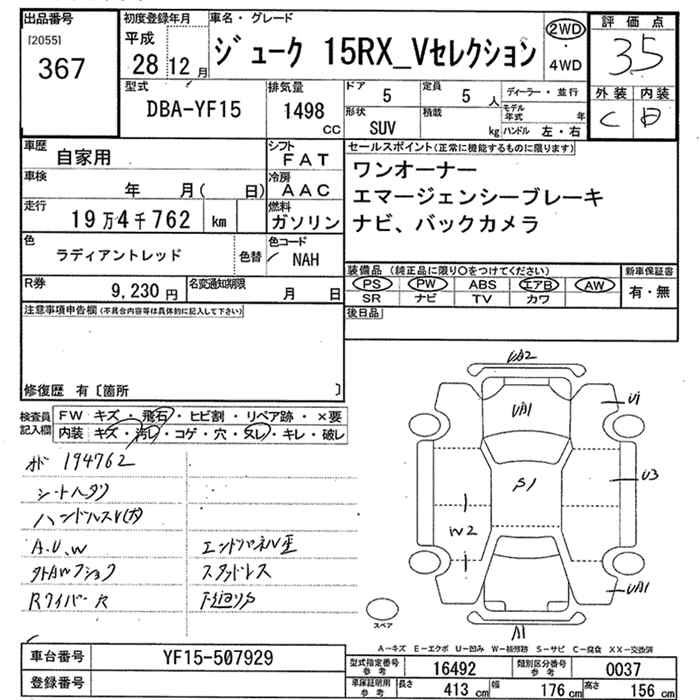 出品番号
[2055]
367
初度登録年月
平成
28 12 月
車名・グレード
ジューク 15RX_Vセレクション
2WD
・
4WD
評価点
3.5
外装 内装
C
型式
DBA-YF15
排気量
1498
CC
ドア
5
定員
5 人
形状
SUV
積載
kg
ディーラー・並行
モデル年式 年
ハンドル 左・右
車歴
自家用
シフト
FAT
車検
年 月( 日)
冷房
AAC
走行
19万4千762 km
燃料
ガソリン
色
ラディアントレッド
色替
色コード
NAH
R券
9,230 円
名変通知期限
月 日
セールスポイント(正常に機能するものに限ります)
ワンオーナー
エマージェンシーブレーキ
ナビ、バックカメラ
装備品 (純正品に限り○をつけてください)
PS PW ABS エアB AW
SR ナビ TV カワ
新車保証書
有・無
後日品
注意事項申告欄(不具合内容等は具体的に記入して下さい)
修復歴 有〔箇所 〕
検査員記入欄
FW キズ・飛石・ヒビ割・リペア跡・×要
内装 キズ・汚レ・コゲ・穴・ヌレ・キレ・破レ
194762
シートヘタリ
A.U.W
RワイパーR
スタッドレス
UA2
UA1
U1
S1
U3
W2
UA1
A1
スペア
A-キズ E-エクボ U-凹み W-補修跡 S-サビ C-腐食 XX-交換済
車台番号
YF15-507929
登録番号
型式指定番号
参考
16492
類別区分番号
参考
0037
車庫証明用
参考
長さ
413 cm
幅
176 cm
高さ
156 cm